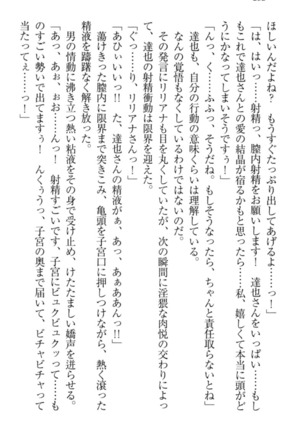 ほしいんだよね？　もうすぐたっぷり出してあげるよ……っ！」
「もはい……っ！　射精っ、膣内射精をお願いします！　達也さんをいっぱい……も
っ！　これで達也さんとの愛の結晶が宿るかもと思ったら……私、嬉しくて本当に頭がど
うにかなってしまいそうですぅ！」
「んっ、く……ふふっ、そうだね。もしそうなったら、ちゃんと責任取らないとね」
達也も、自分の行動の意味くらいは理解している。
なんの覚悟もなくしているわけではないのだ。
その発言にリリアナも目を丸くしていたが、次の瞬間に淫猥な肉悦の交わりによっ
て、達也の射精衝動は限界を迎えた。
「ぐっ……り、リリアナさんっ！」
「あひぃいいっ!!　た、達也さんの精液がぁ、あっ、あぁああんっ!!」
蕩けきった膣内に限界まで突きこみ、亀頭を子宮口に押しつけながら、熱く滾った
精液を躊躇なく解き放った。
男の情動に沸き立つ熱い粘液をその身で受け止め、けたたましい嬌声を迸らせる。
「あっ、あぁ、おぉ……んっ！　射精すごいです、子宮にビュクビュクッって……も
のすごい勢いで出てますぅっ！　んくぅうっ、子宮の奥まで届いて、ビチャビチャって
当たってぇ……っ！」